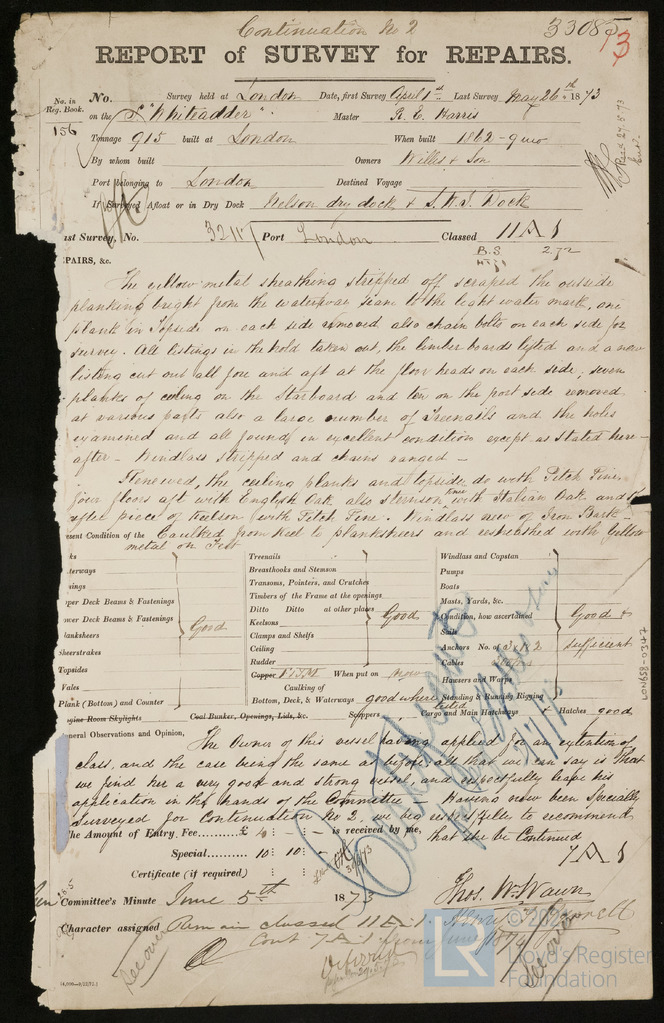 Continuation No 2
33085
13
REPORT of SURVEY for REPAIRS.
No. in Reg. Book.
156
No. Survey held at London Date, first Survey April 1st Last Survey May 26th 1873
on the S "Whiteadder" Master R. C. Harris
Tonnage 915 built at London When built 1862 - 9 mo
By whom built Owners Willis & Son
Port belonging to London Destined Voyage
If Surveyed Afloat or in Dry Dock Nelson dry dock & S.W.I. Dock
ast Survey, No. 32117 Port London Classed 11 A 1
B.S. 2.72
EPAIRS, &c.
The yellow metal sheathing stripped off scraped the outside
planking bright from the waterways seam to the light water mark, one
plank in Topside on each side removed also chain bolts on each side for
survey. All listings in the hold taken out, the limber boards lifted and a new
listing cut out all fore and aft at the floor heads on each side, seven
planks of ceiling on the Starboard and ten on the port side removed
at various parts also a large number of Treenails and the holes
examined and all found in excellent condition except as stated here-
after - Windlass stripped and chains ranged -
Renewed, the ceiling planks and topside do with Pitch Pine
four floors aft with English Oak also sternson with Italian Oak and
after piece of Keelson with Pitch Pine. Windlass new of Iron Bark -
esent Condition of the Caulked from Keel to planksheers and resheathed with Yellow
metal on Felt
ks
terways
nings
pper Deck Beams & Fastenings
ower Deck Beams & Fastenings
lanksheers
Sheerstrakes
Topsides
Wales
Plank (Bottom) and Counter
Good
Engine Room Skylights
Treenails
Breasthooks and Stemson
Transoms, Pointers, and Crutches
Timbers of the Frame at the openings
Ditto Ditto at other places
Keelsons
Clamps and Shelfs
Ceiling
Rudder
Good
Copper When put on now
Caulking of
Bottom, Deck, & Waterways good where tested
Coal Bunker, Openings, Lids, &c. Scuppers
Windlass and Capstan
Pumps
Boats
Masts, Yards, &c.
Condition, how ascertained
Sails
Anchors No. of 3 x 1 x 2
Cables
Hawsers and Warps
Standing & Running Rigging
Good & sufficient
Cargo and Main Hatchways & Hatches good
eneral Observations and Opinion,
The Owner of this vessel having applied for an extention of
class, and the case being the same as before all that we can say is that
we find her a very good and strong vessel, and respectfully leave his
application in the hands of the Committee - Having now been Specially
Surveyed for Continuation No 2, we beg respectfully to recommend
that she be Continued
7 A 1
The Amount of Entry Fee......£ : - : - is received by me,
Special...... 10 : 10 : -
Certificate (if required)
Thos. W. Wawn
Committee's Minute June 5th 1873
Character assigned Remain classed 11 A 1
Cont 7 A 1 from June 1874
LON859-0347
© Lloyd's Register Foundation
LR